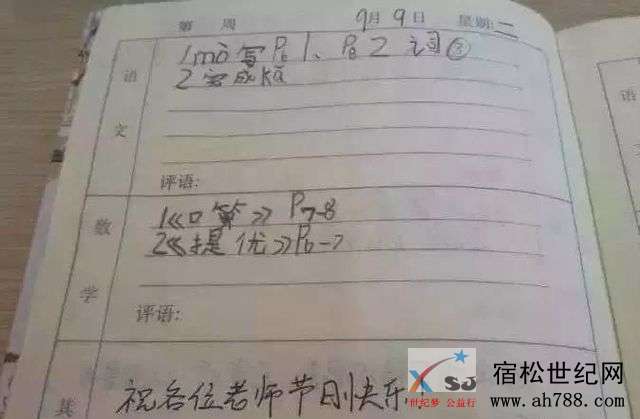 第 周 9月9日 星期二
语文
1mò写P61、P62词②
2完成kǎ
评语:
数学
1《口算》P7-8
2《提优》P6-7
评语:
其
祝各位老师节日快乐
XSJ
世纪梦 公益行
宿松世纪网
www.ah788.com